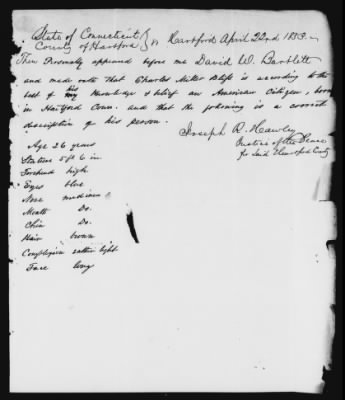 State of Connecticut } ss Hartford April 22nd 1853
County of Hartford }
Then Personally appeared before me David W. Bartlett
and made oath that Charles Miller Bliss is according to the
best of his knowledge & belief an American Citizen, born
in Hartford Conn. and that the following is a correct
description of his person.
Joseph R. Hawley
Justice of the Peace
for said Hartford County
Age 26 years
Stature 5 ft 6 in
Forehead high
Eyes blue
Nose medium
Mouth Do.
Chin Do.
Hair brown
Complexion rather light
Face long